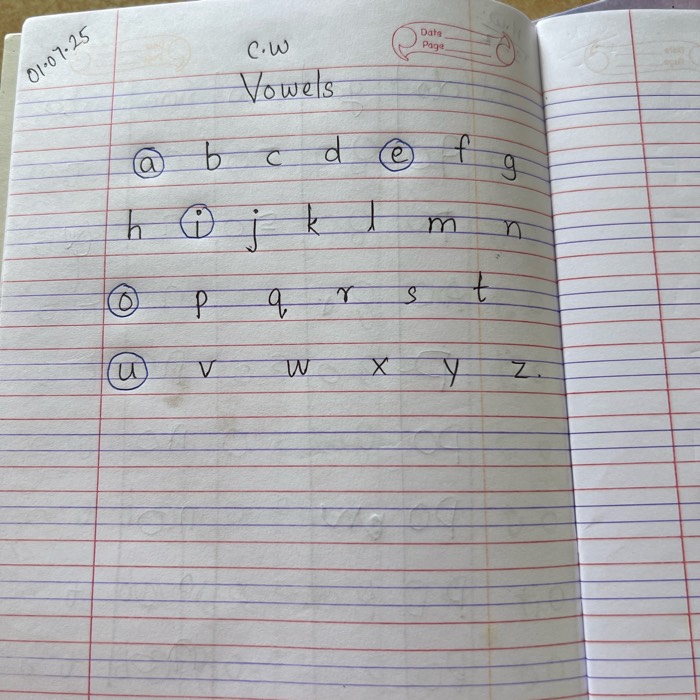 01.07.25
C.W
Data
Page
Vowels
a b c d e f g
h i j k l m n
o p q r s t
u v w x y z.